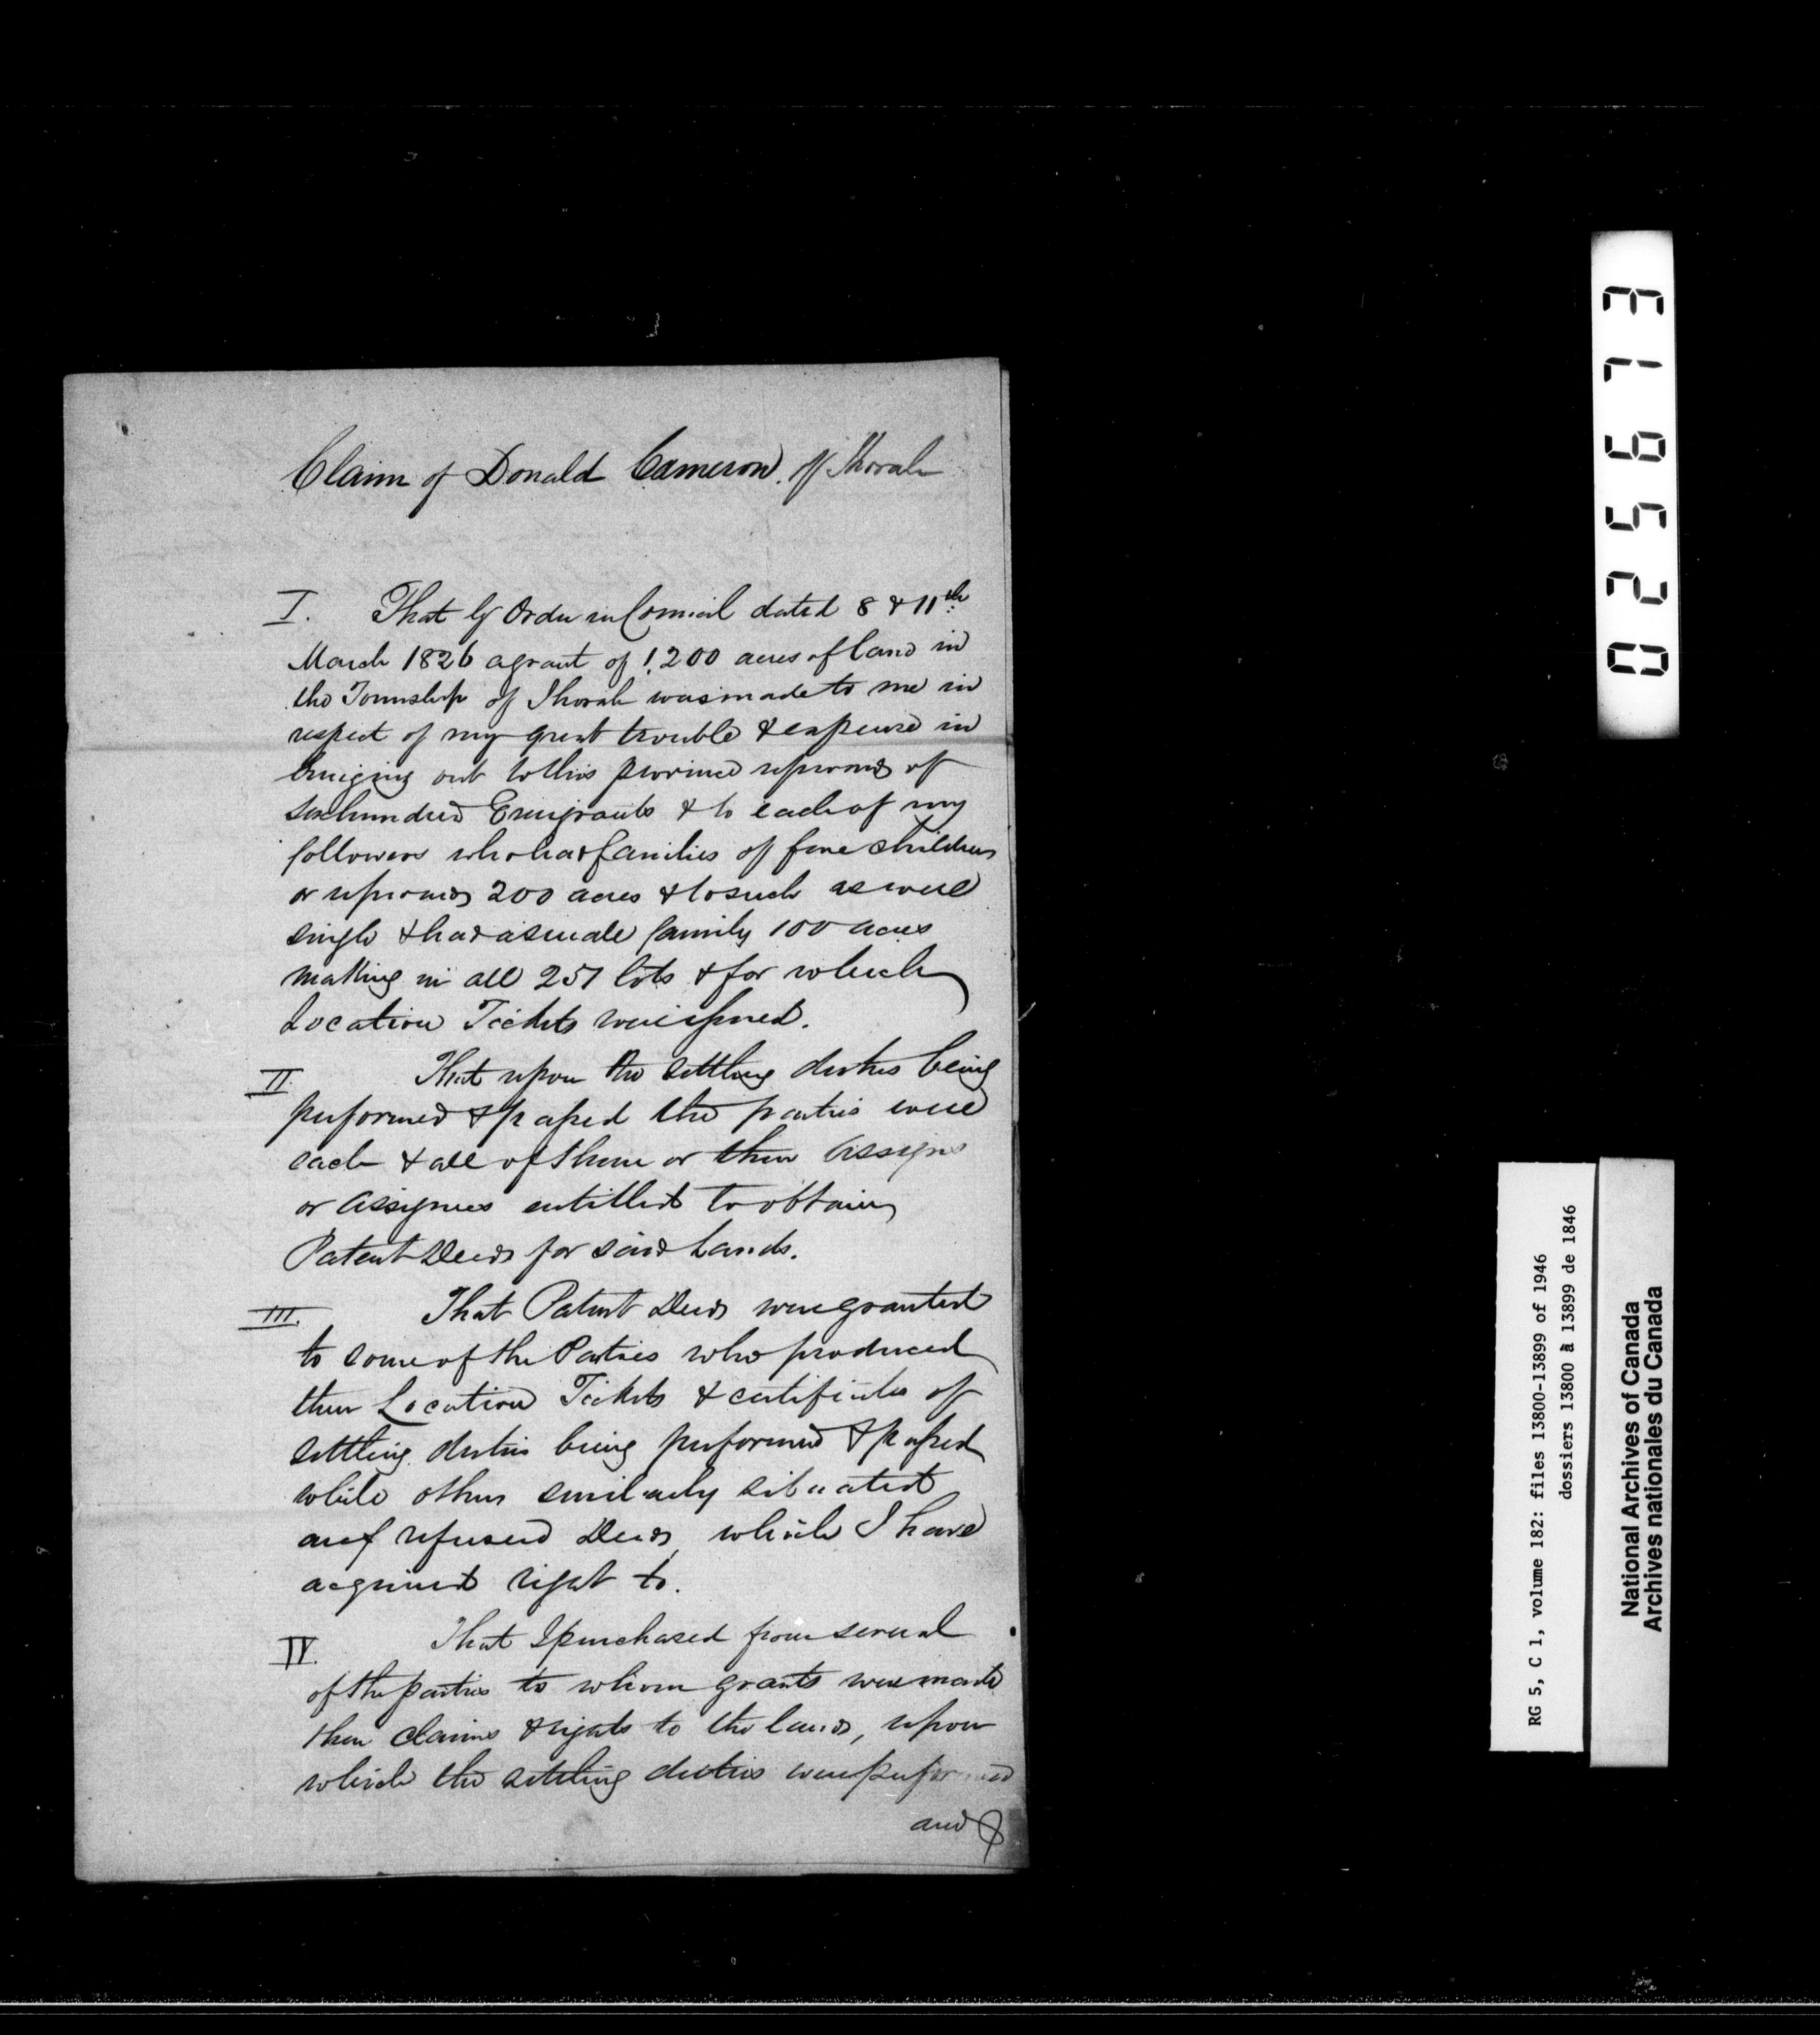 Claim of Donald Cameron of Thorah
I. That by Order in Council dated 8 & 11th
March 1826 a grant of 1,200 acres of land in
the Township of Thorah was made to me in
respect of my great trouble & expense in
bringing out to this province upwards of
six hundred Emigrants & to each of my
followers who had families of five children
or upwards 200 acres & to such as were
single & had a small family 100 acres
making in all 251 lots & for which
Location Tickets were issued.
II. That upon the settling duties being
performed & passed the parties were
each & all of them or their Assigns
or Assignees entitled to obtain
Patent Deeds for said Lands.
III. That Patent Deeds were granted
to some of the Parties who produced
their Location Tickets & certificates of
settling duties being performed & passed
while others similarly situated
are refused Deeds, which I have
acquired right to.
IV. That I purchased from several
of the parties to whom grants were made
their claims & rights to the lands, upon
which the settling duties were performed
and
025673
RG 5, C 1, volume 182: files 13800-13899 of 1946
dossiers 13800 à 13899 de 1846
National Archives of Canada
Archives nationales du Canada